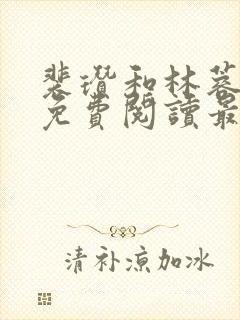 裴瓒和林蓦
免費閱讀最
清补凉加冰